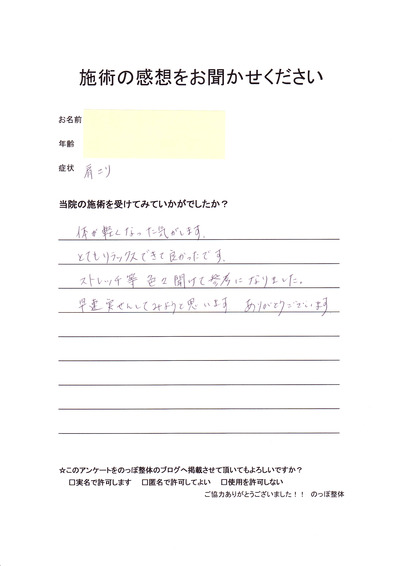 施術の感想をお聞かせください
お名前
年齢
症状 肩こり
当院の施術を受けてみていかがでしたか？
体が軽くなった気がします。
とてもリラックスできて良かったです。
ストレッチ等 色々聞けて参考になりました。
早速実せんしてみようと思います ありがとうございます
☆このアンケートをのっぽ整体のブログへ掲載させて頂いてもよろしいですか？
□実名で許可します □匿名で許可してよい □使用を許可しない
ご協力ありがとうございました！！ のっぽ整体